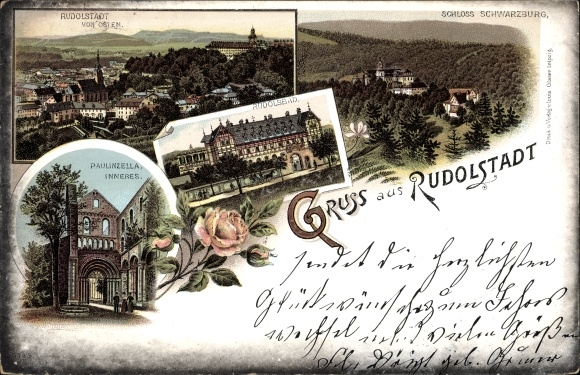 RUDOLSTADT
VON OSTEN.
SCHLOSS SCHWARZBURG,
RUDOLSBAD.
PAULINZELLA,
INNERES.
GRUSS aus RUDOLSTADT
sendet die herzlichsten
Glückwünsche zum Jahres
wechsel und vielen Grüßen
geb.